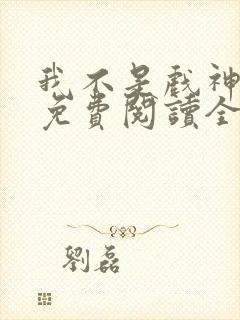 我不是戲神
免費閱讀全
劉磊